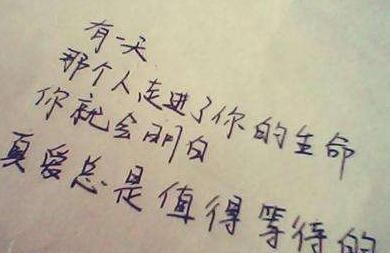 有一天
那个人走进了你的生命
你就会明白
真爱总是值得等待的